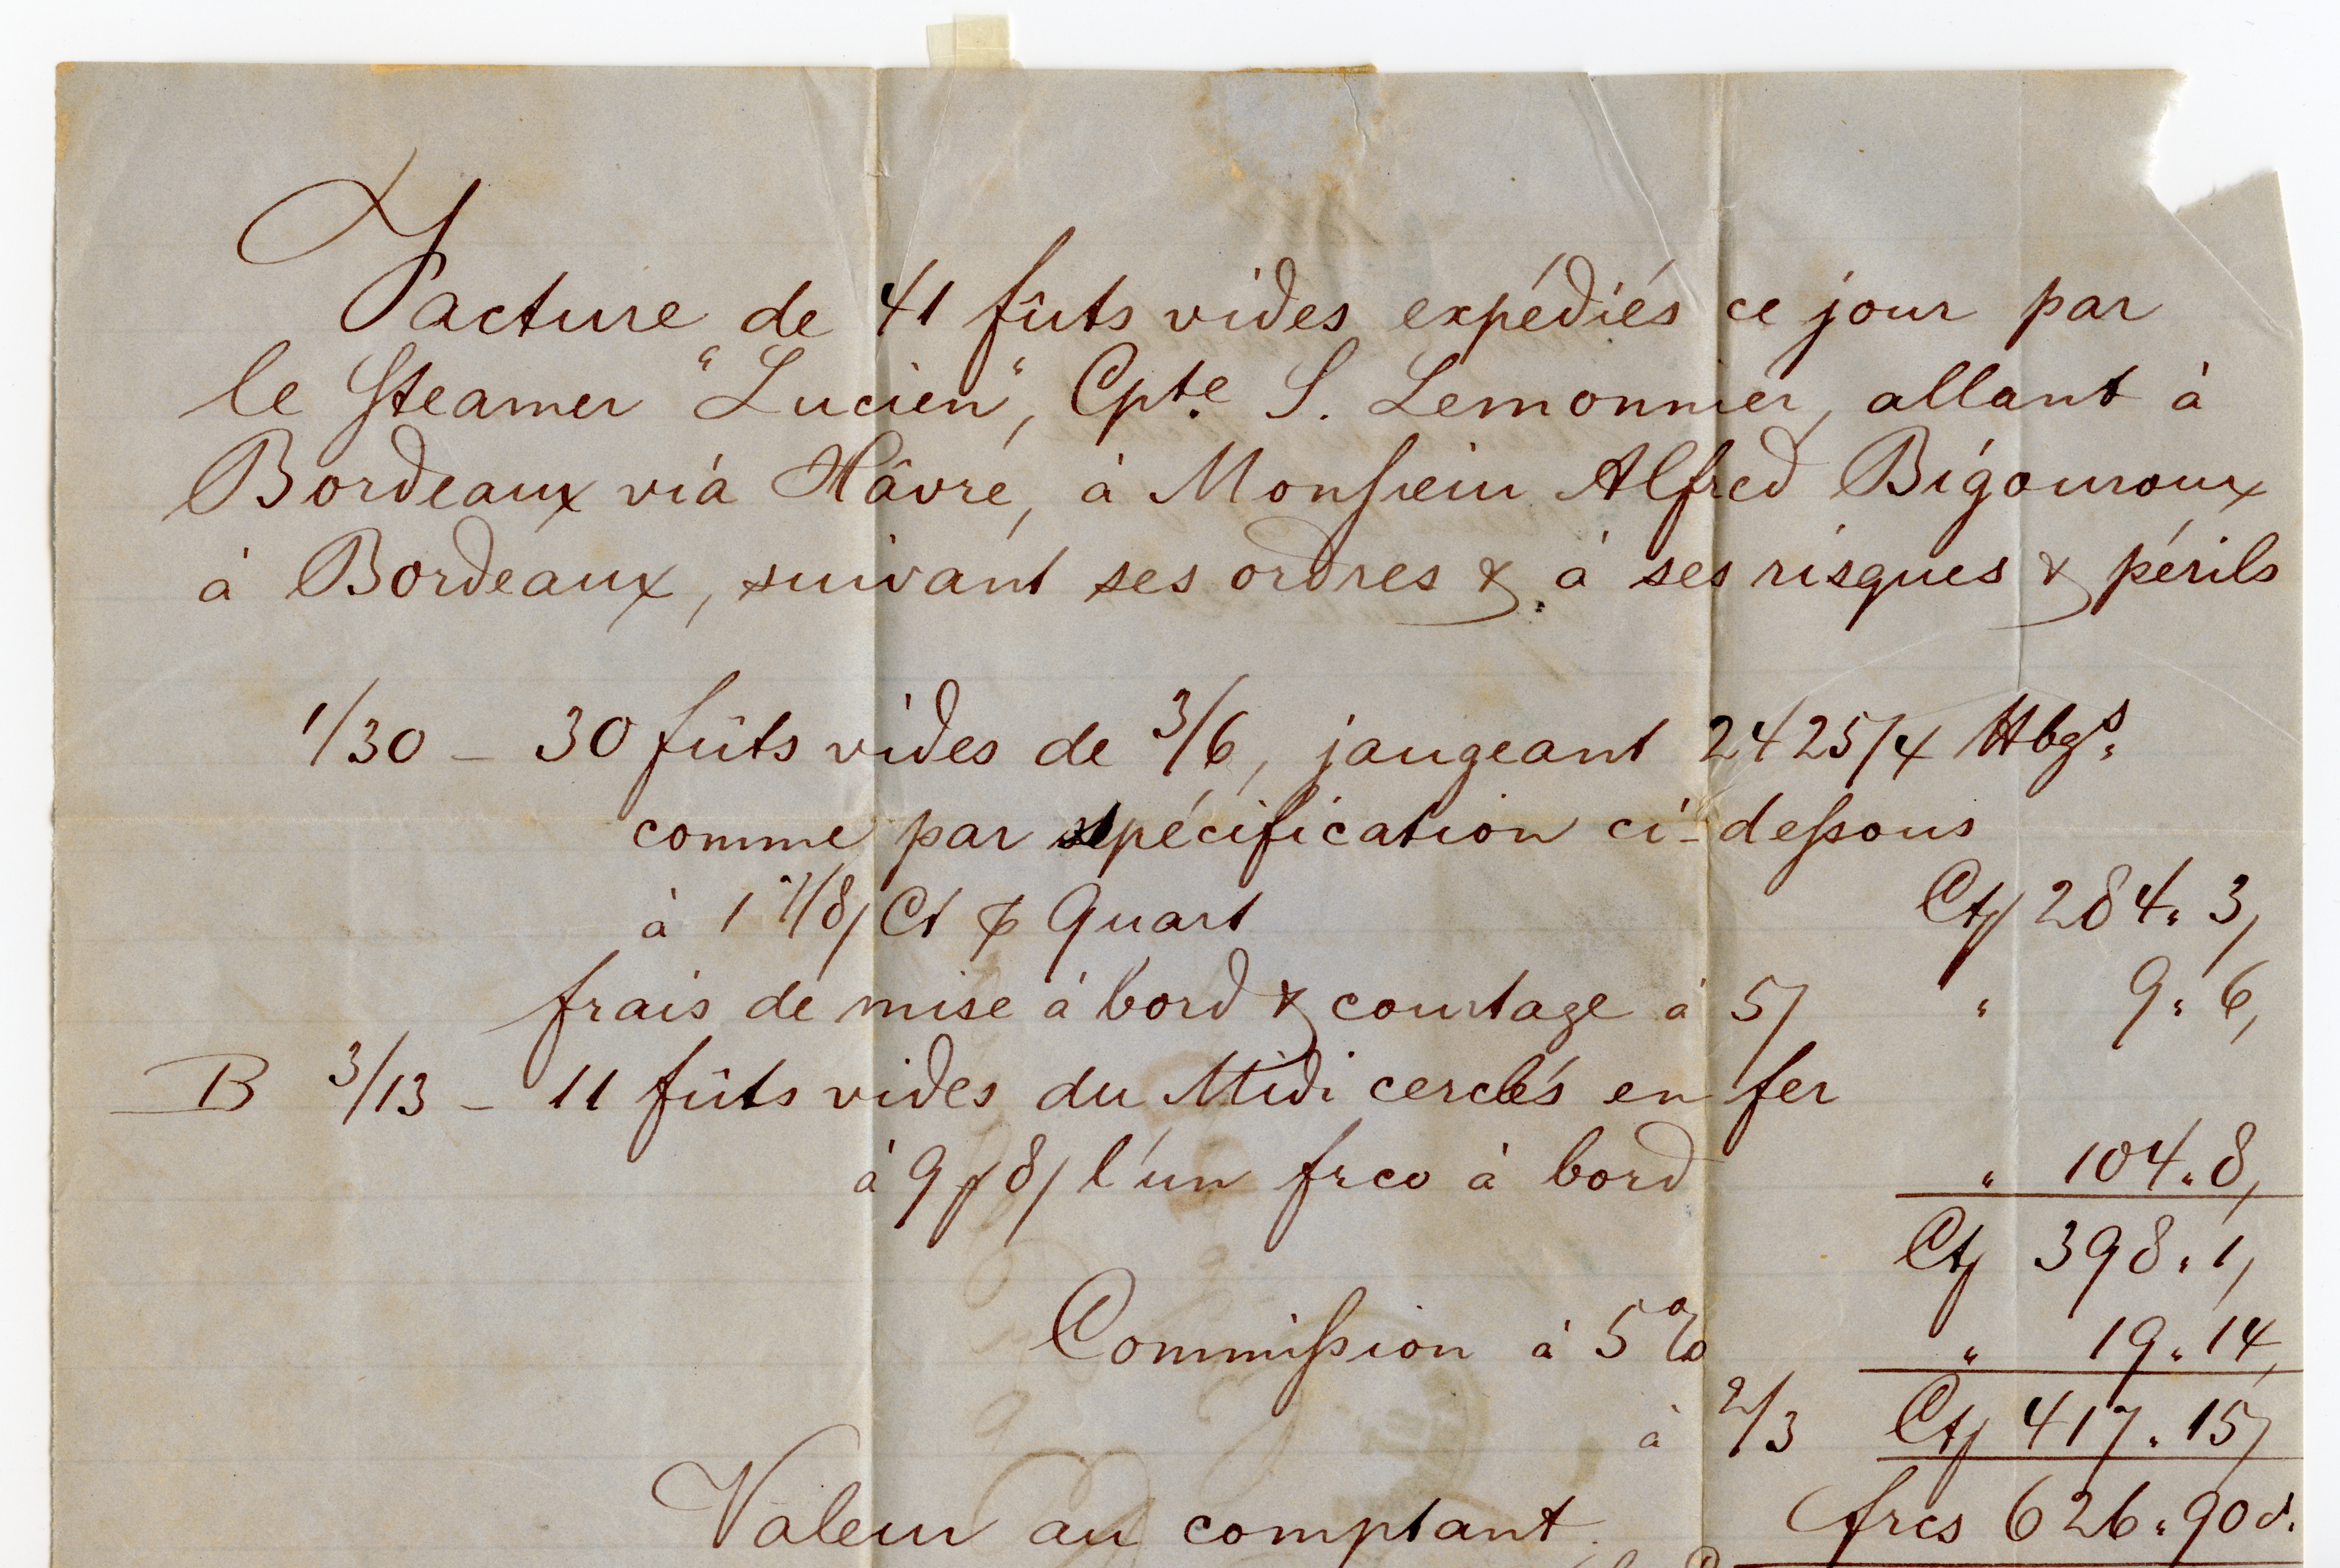 Facture de 41 fûts vides expédiés ce jour par
le Steamer "Lucien", Cpte. S. Lemonnier, allant à
Bordeaux viâ Hâvre, à Monsieur Alfred Bigouroux
à Bordeaux, suivant ses ordres & à ses risques & périls
1/30 – 30 fûts vides de 3/6, jaugeant 2425/4 Hbgs.
comme par spécification ci-dessous
à 1 7/8/ Ct p Quart Ct/ 284. 3,
frais de mise à bord & courtage à 5/ " 9. 6,
B 3/13 – 11 fûts vides du Midi cerclés en fer
à 9 / 8/ l'un frco à bord " 104. 8,
Ct/ 398. 1,
Commission à 5% " 19. 14,
à 2/3 Ct/ 417. 15/
Valeur au comptant frcs 626. 90